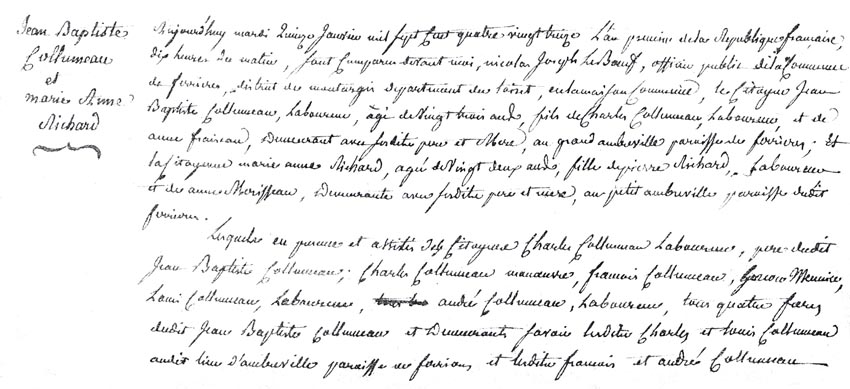 Jean Baptiste
Collumeau
et
marie Anne
Richard
Aujourd'huy mardi Quinze Janvier mil sept Cent quatre vingt treize L'an premier de la République française,
dix heures du matin, sont Comparus devant moi, nicolas Joseph LeBœuf, officier public de la Commune
de ferrieres, district de montargis Departement du Loiret, en la maison Commune, le Citoyen Jean
Baptiste Collumeau, Laboureur, âgé de Vingt trois ans, fils de Charles Collumeau, Laboureur, et de
anne fraiseau, Demeurant avec sesdits pere et Mere, au grand ambreville paroisse de ferrieres; Et
la Citoyenne marie anne Richard, agée de Vingt deux ans, fille de pierre Richard, Laboureur
et de anne Morisseau, Demeurante avec sesdits pere et mere, au petit ambreville paroisse dudit
ferrieres.
Lesquels en presence et assistés des Citoyens Charles Collumeau Laboureur, pere dudit
Jean Baptiste Collumeau; Charles Collumeau manœuvre, francois Collumeau, Garcon Meunier,
Louis Collumeau, Laboureur, andré Collumeau, Laboureur, tous quatre freres
dudit Jean Baptiste Collumeau et Demeurants savoir lesdits Charles et Louis Collumeau
audit lieu d'ambreville paroisse de ferrieres et lesdits francois et andré Collumeau